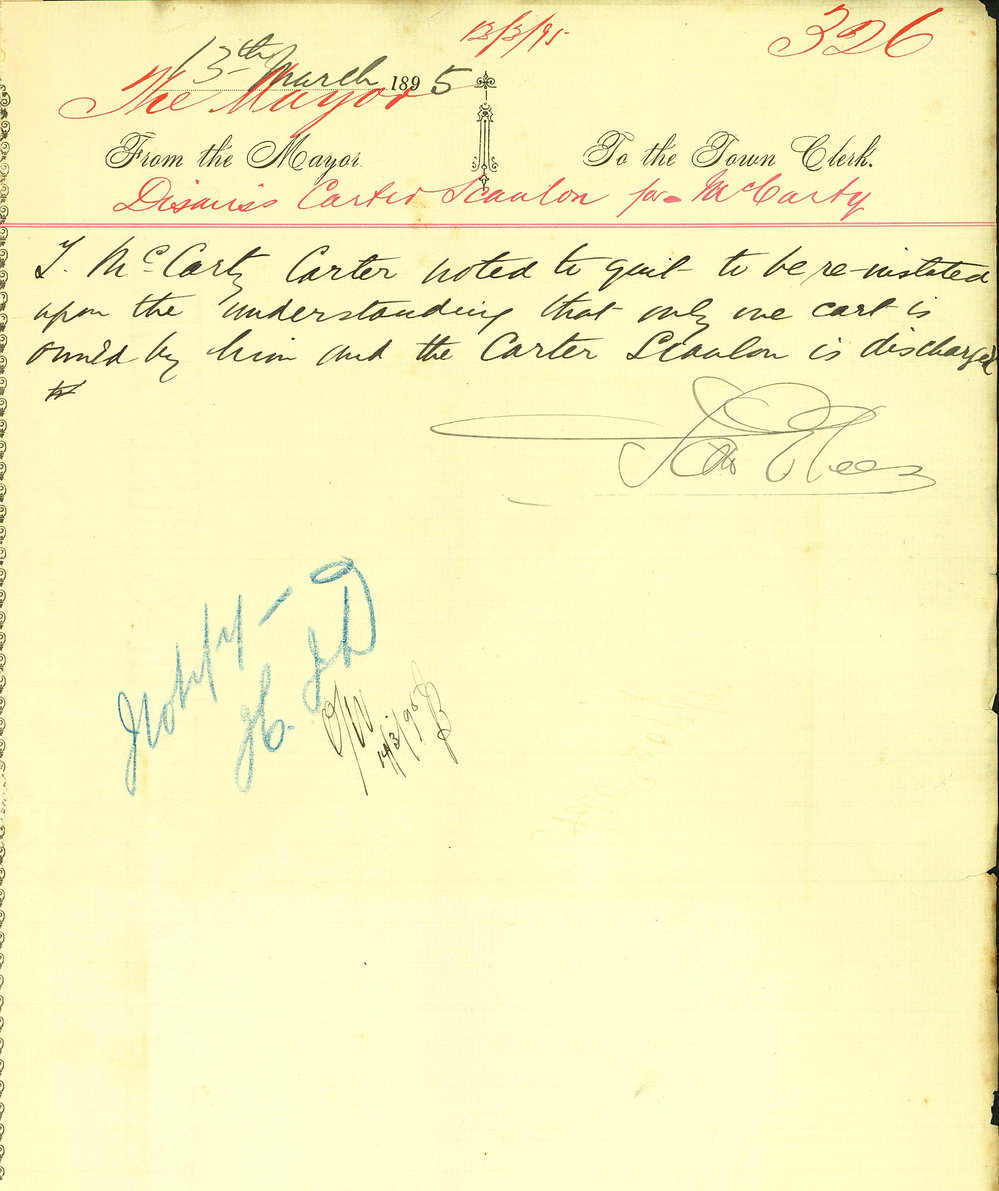 13/3/95 326
13th March 1895
The Mayor
From the Mayor To the Town Clerk.
Dismiss Carter Scanlon for McCarty
T. McCarty Carter noted to quit to be re-instated
upon the understanding that only one cart is
owned by him and the Carter Scanlon is discharged
Notify
14/3/95